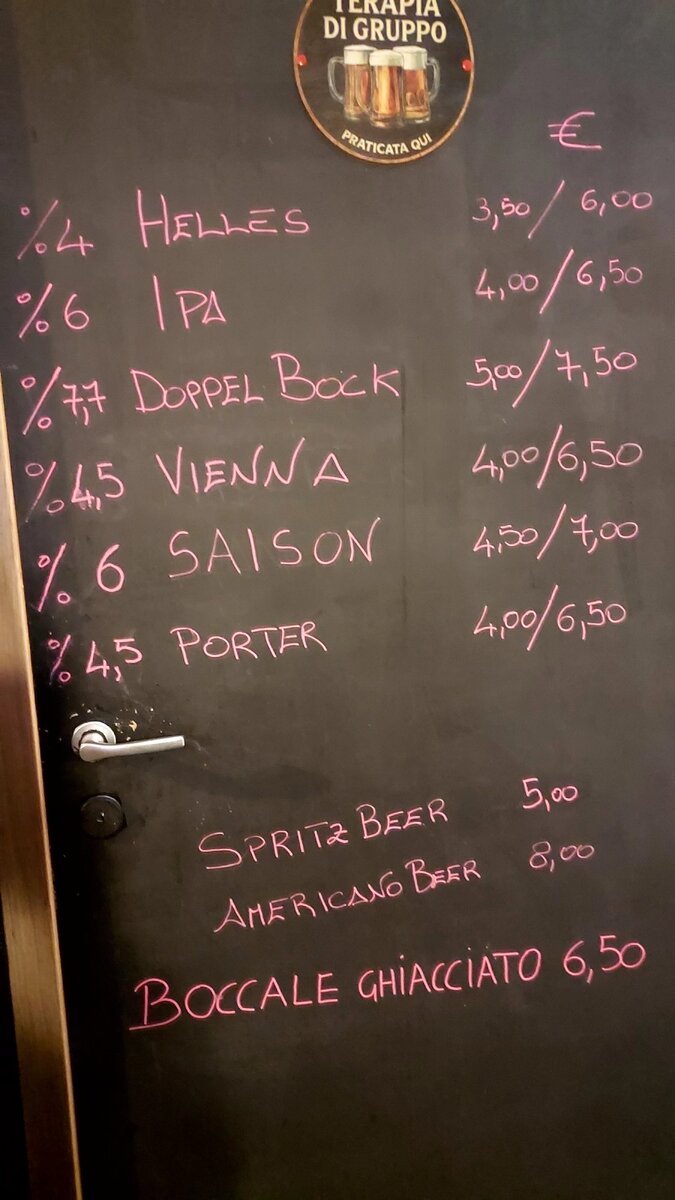 TERAPIA
DI GRUPPO
PRATICATA QUI
€
%4 HELLES 3,50/ 6,00
%6 IPA 4,00/6,50
%7,7 DOPPEL BOCK 5,00/7,50
%4,5 VIENNA 4,00/6,50
%6 SAISON 4,50/7,00
%4,5 PORTER 4,00/6,50
SPRITZ BEER 5,00
AMERICANO BEER 8,00
BOCCALE GHIACCIATO 6,50